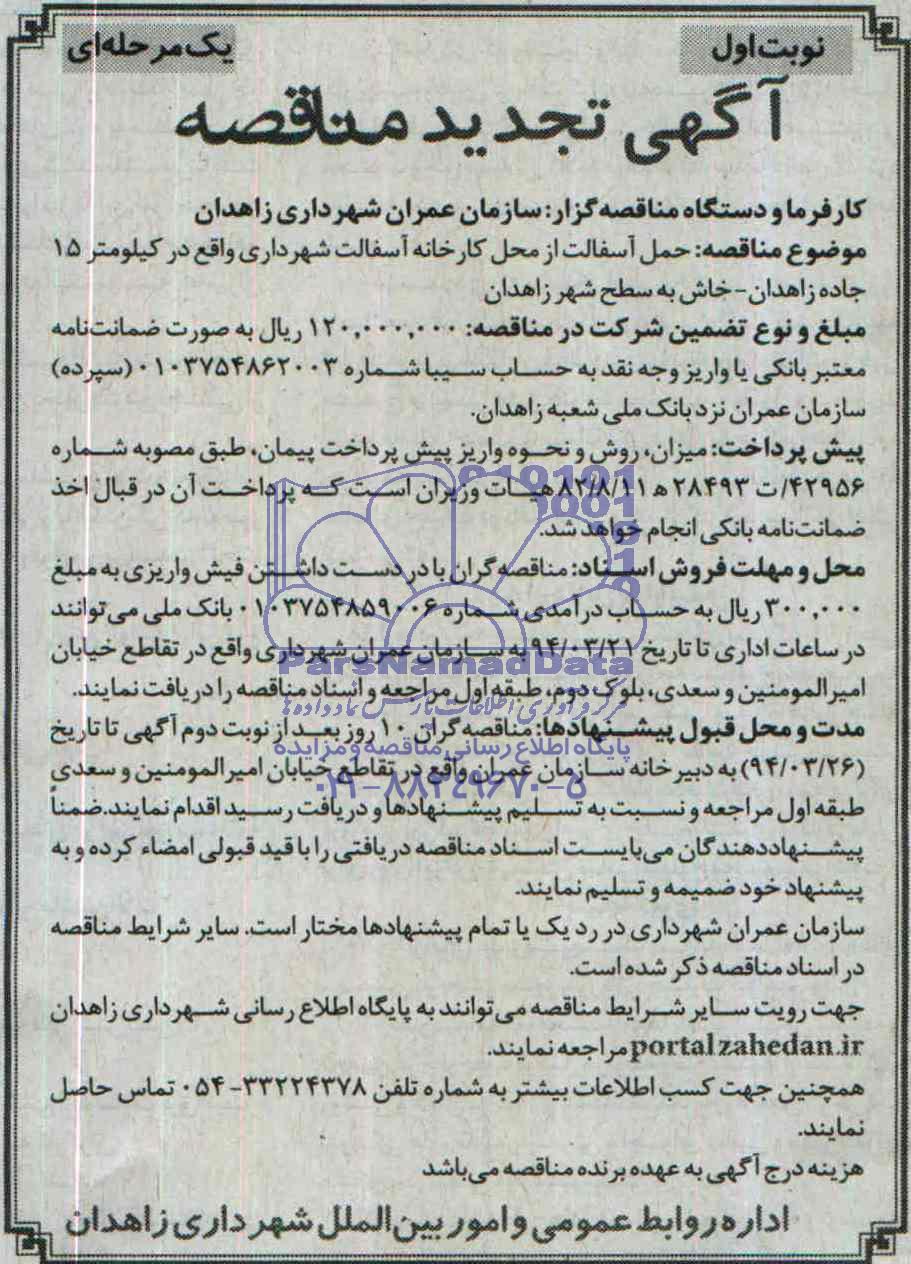 نوبت اول
یک مرحله‌ای
آگهی تجدید مناقصه
کارفرما و دستگاه مناقصه‌گزار: سازمان عمران شهرداری زاهدان
موضوع مناقصه: حمل آسفالت از محل کارخانه آسفالت شهرداری واقع در کیلومتر ۱۵
جاده زاهدان-خاش به سطح شهر زاهدان
مبلغ و نوع تضمین شرکت در مناقصه: ۱۲۰,۰۰۰,۰۰۰ ریال به صورت ضمانت‌نامه
معتبر بانکی یا واریز وجه نقد به حساب سیبا شماره ۰۱۰۳۷۵۴۸۶۲۰۰۳ (سپرده)
سازمان عمران نزد بانک ملی شعبه زاهدان.
پیش پرداخت: میزان، روش و نحوه واریز پیش پرداخت پیمان، طبق مصوبه شماره
۴۲۹۵۶/ت ۲۸۴۹۳ ه ۸۲/۸/۱۱ هیات وزیران است که پرداخت آن در قبال اخذ
ضمانت‌نامه بانکی انجام خواهد شد.
محل و مهلت فروش اسناد: مناقصه‌گران با در دست داشتن فیش واریزی به مبلغ
۳۰۰,۰۰۰ ریال به حساب درآمدی شماره ۰۱۰۳۷۵۴۸۵۹۰۰۶ بانک ملی می‌توانند
در ساعات اداری تا تاریخ ۹۴/۰۳/۲۱ به سازمان عمران شهرداری واقع در تقاطع خیابان
امیرالمومنین و سعدی، بلوک دوم، طبقه اول مراجعه و اسناد مناقصه را دریافت نمایند.
مدت و محل قبول پیشنهادها: مناقصه‌گران ۱۰ روز بعد از نوبت دوم آگهی تا تاریخ
(۹۴/۰۳/۲۶) به دبیرخانه سازمان عمران واقع در تقاطع خیابان امیرالمومنین و سعدی
طبقه اول مراجعه و نسبت به تسلیم پیشنهادها و دریافت رسید اقدام نمایند. ضمناً
پیشنهاددهندگان می‌بایست اسناد مناقصه دریافتی را با قید قبولی امضاء کرده و به
پیشنهاد خود ضمیمه و تسلیم نمایند.
سازمان عمران شهرداری در رد یک یا تمام پیشنهادها مختار است. سایر شرایط مناقصه
در اسناد مناقصه ذکر شده است.
جهت رویت سایر شرایط مناقصه می‌توانند به پایگاه اطلاع رسانی شهرداری زاهدان
portalzahedan.ir مراجعه نمایند.
همچنین جهت کسب اطلاعات بیشتر به شماره تلفن ۳۳۲۲۴۳۷۸-۰۵۴ تماس حاصل
نمایند.
هزینه درج آگهی به عهده برنده مناقصه می‌باشد
اداره روابط عمومی و امور بین‌الملل شهرداری زاهدان
ParsNamadData
پایگاه اطلاع رسانی مناقصه و مزایده
۰۲۱-۸۸۳۴۹۶۷۰-۵